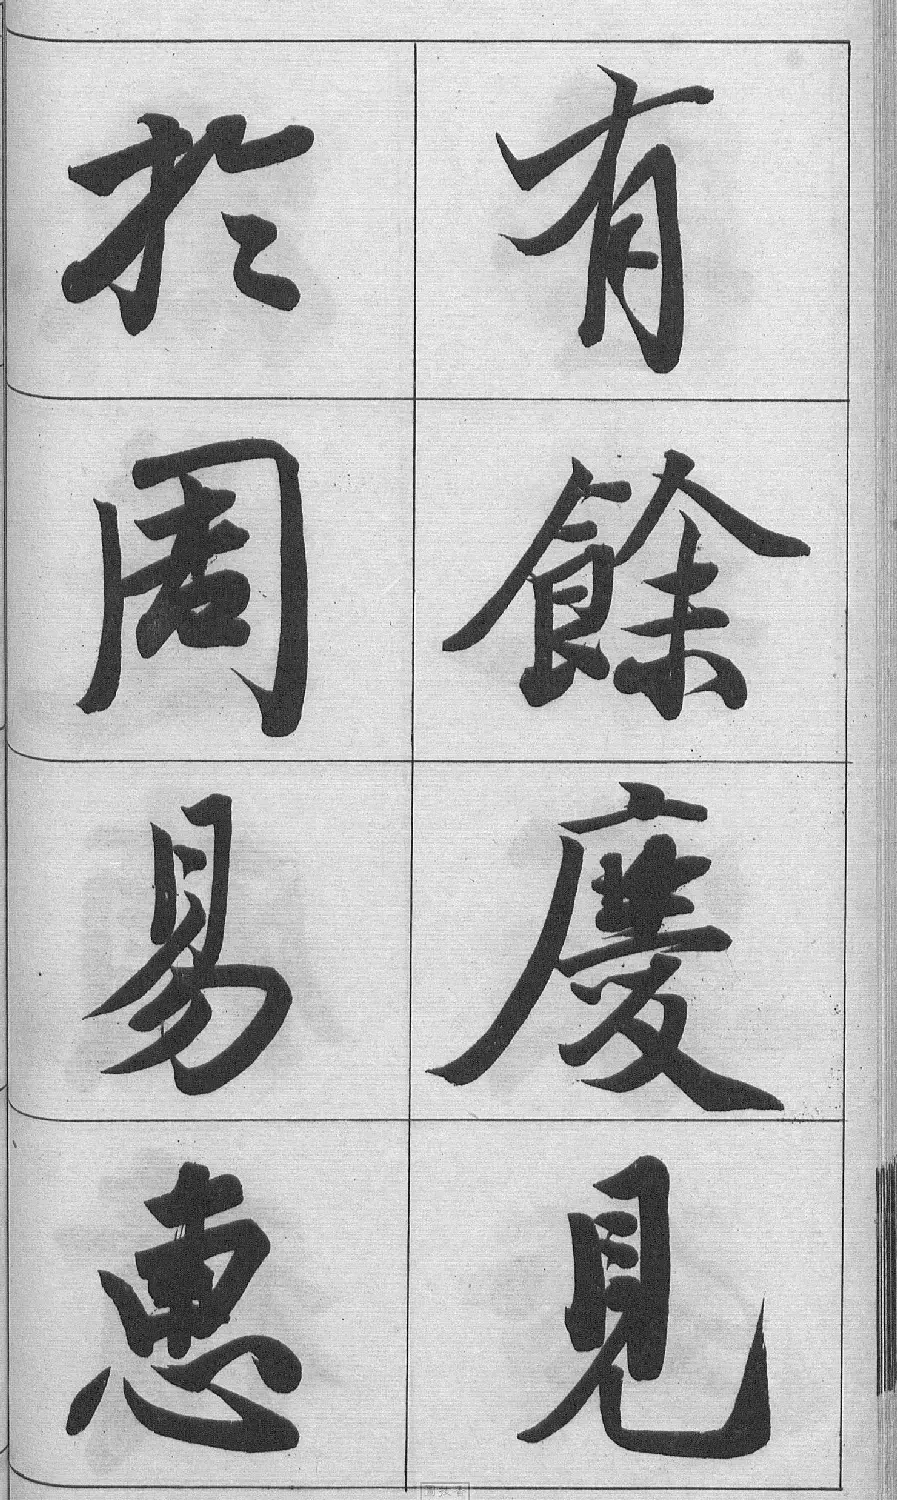 有餘慶見
於周易惠